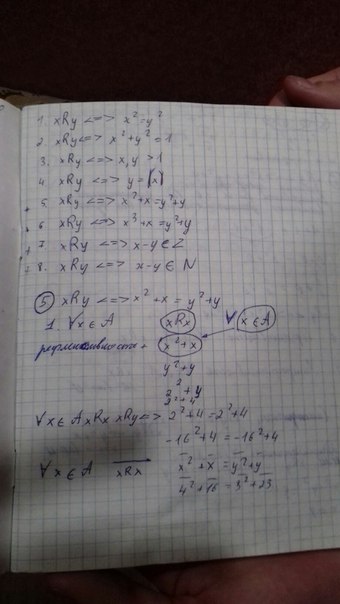 1 xRy <=> x²=y²
2 xRy <=> x²+y²=1
3. xRy <=> x,y >1
4 xRy <=> y=|x|
5 xRy <=> x²+x=y²+y
6 xRy <=> x³+x=y²+y
7 xRy <=> x-y∈Z
8. xRy <=> x-y∈N
⑤ xRy <=> x²+x = y²+y
1. ∀x∈A xRx ∀ x∈A
рефлексивность + x²+x
y²+y
2²+4
∀x∈A xRx xRy <=> 2²+4=2²+4
-16²+4=-16²+4
∀x∈A xRx x²+x=y²+y
4²+16=3²+23